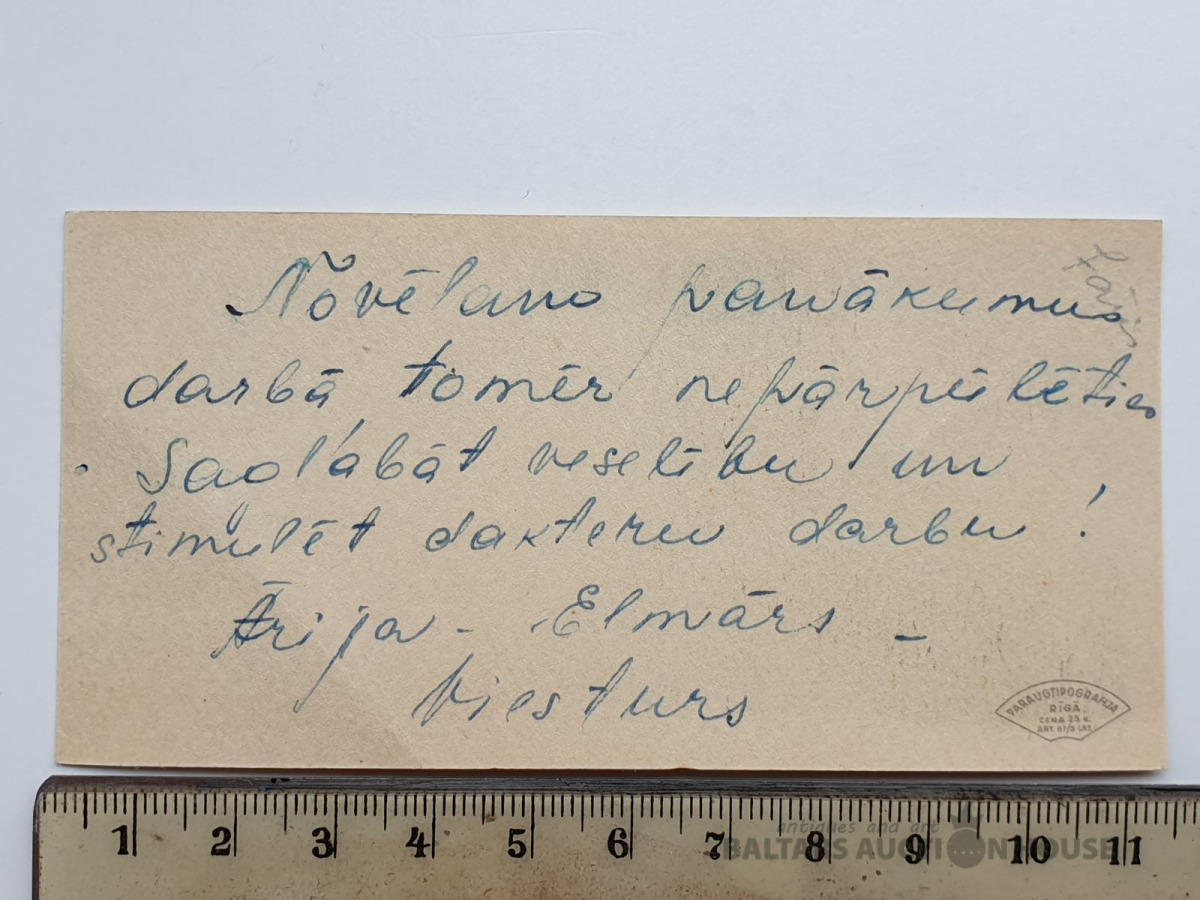 Novēlano panākumus
darbā tomēr nepārpūlēties
Saglabāt veselību un
stimulēt dakteru darbu!
Ārija - Elmārs -
Viesturs
PARAUGTIPOGRAFIJA
RĪGĀ
CENA 25 K.
ART. 61/5 LAT.
1 2 3 4 5 6 7 8 9 10 11
antiques and art
BALTARS AUCTION HOUSE